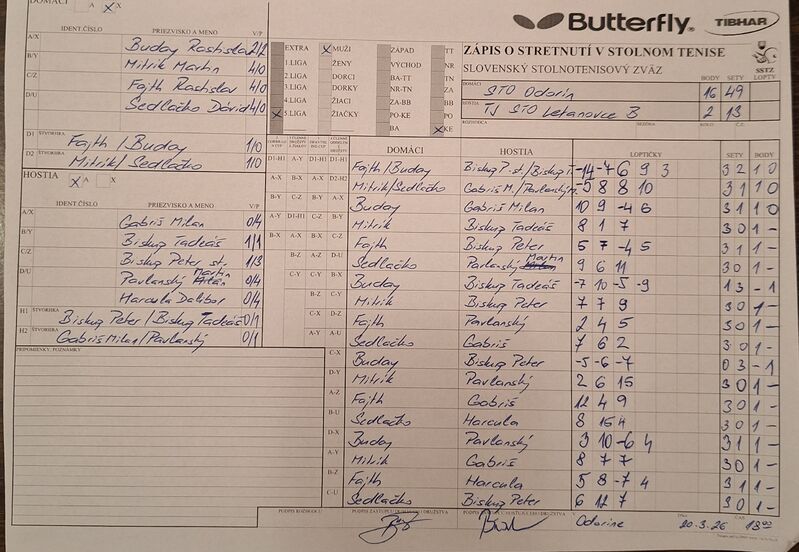 DOMÁCI A X X
Butterfly® TIBHAR
IDENT.ČÍSLO PRIEZVISKO A MENO V/P
A/X Buday Rastislav 2/2
B/Y Mitrík Martin 4/0
C/Z Fajth Rastislav 4/0
D/U Sedlačko Dávid 4/0
D1 ŠTVORHRA Fajth/Buday 1/0
D2 ŠTVORHRA Mitrík/Sedlačko 1/0
EXTRA X MUŽI ZÁPAD TT
1.LIGA ŽENY VÝCHOD NR
2.LIGA DORCI BA-TT TN
3.LIGA DORKY NR-TN ZA
4.LIGA ŽIACI ZA-BB BB
X 5.LIGA ŽIAČKY PO-KE PO
BA X KE
ZÁPIS O STRETNUTÍ V STOLNOM TENISE
SLOVENSKÝ STOLNOTENISOVÝ ZVÄZ
SSTZ
BODY SETY LOPTY
DOMÁCI STO Odorín 16 49
HOSTIA TJ STO Letanovce B 2 13
ROZHODCA SEZÓNA KOLO Č.Z.
HOSTIA X A X
IDENT.ČÍSLO PRIEZVISKO A MENO V/P
A/X Gabriš Milan 0/4
B/Y Biskup Tadeáš 1/1
C/Z Biskup Peter st. 1/3
D/U Pavlanský Martin 0/4
Harcula Dalibor 0/4
H1 ŠTVORHRA Biskup Peter/Biskup Tadeáš 0/1
H2 ŠTVORHRA Gabriš Milan/Pavlanský 0/1
PRIPOMIENKY, POZNÁMKY
DOMÁCI HOSTIA LOPTIČKY SETY BODY
Fajth/Buday Biskup P. st./Biskup T. -14 -7 6 9 3 3 2 1 0
Mitrík/Sedlačko Gabriš M./Pavlanský M. -5 8 8 10 3 1 1 0
Buday Gabriš Milan 10 9 -4 6 3 1 1 0
Mitrík Biskup Tadeáš 8 1 7 3 0 1 -
Fajth Biskup Peter 5 7 -4 5 3 1 1 -
Sedlačko Pavlanský Martin 9 6 11 3 0 1 -
Buday Biskup Tadeáš -7 10 -5 -9 1 3 - 1
Mitrík Biskup Peter 7 7 9 3 0 1 -
Fajth Pavlanský 2 4 5 3 0 1 -
Sedlačko Gabriš 7 6 2 3 0 1 -
C-X Buday Biskup Peter -5 -6 -7 0 3 - 1
D-Y Mitrík Pavlanský 2 6 15 3 0 1 -
A-Z Fajth Gabriš 12 4 9 3 0 1 -
B-U Sedlačko Harcula 8 15 4 3 0 1 -
D-X Buday Pavlanský 3 10 -6 4 3 1 1 -
A-Y Mitrík Gabriš 8 7 7 3 0 1 -
B-Z Fajth Harcula 5 8 -7 4 3 1 1 -
C-U Sedlačko Biskup Peter 6 12 7 3 0 1 -
PODPIS ROZHODCU PODPIS ZÁSTUPCU DOMÁCEHO DRUŽSTVA PODPIS ZÁSTUPCU HOSŤUJÚCEHO DRUŽSTVA
Odoríne 20.3.26 18:00